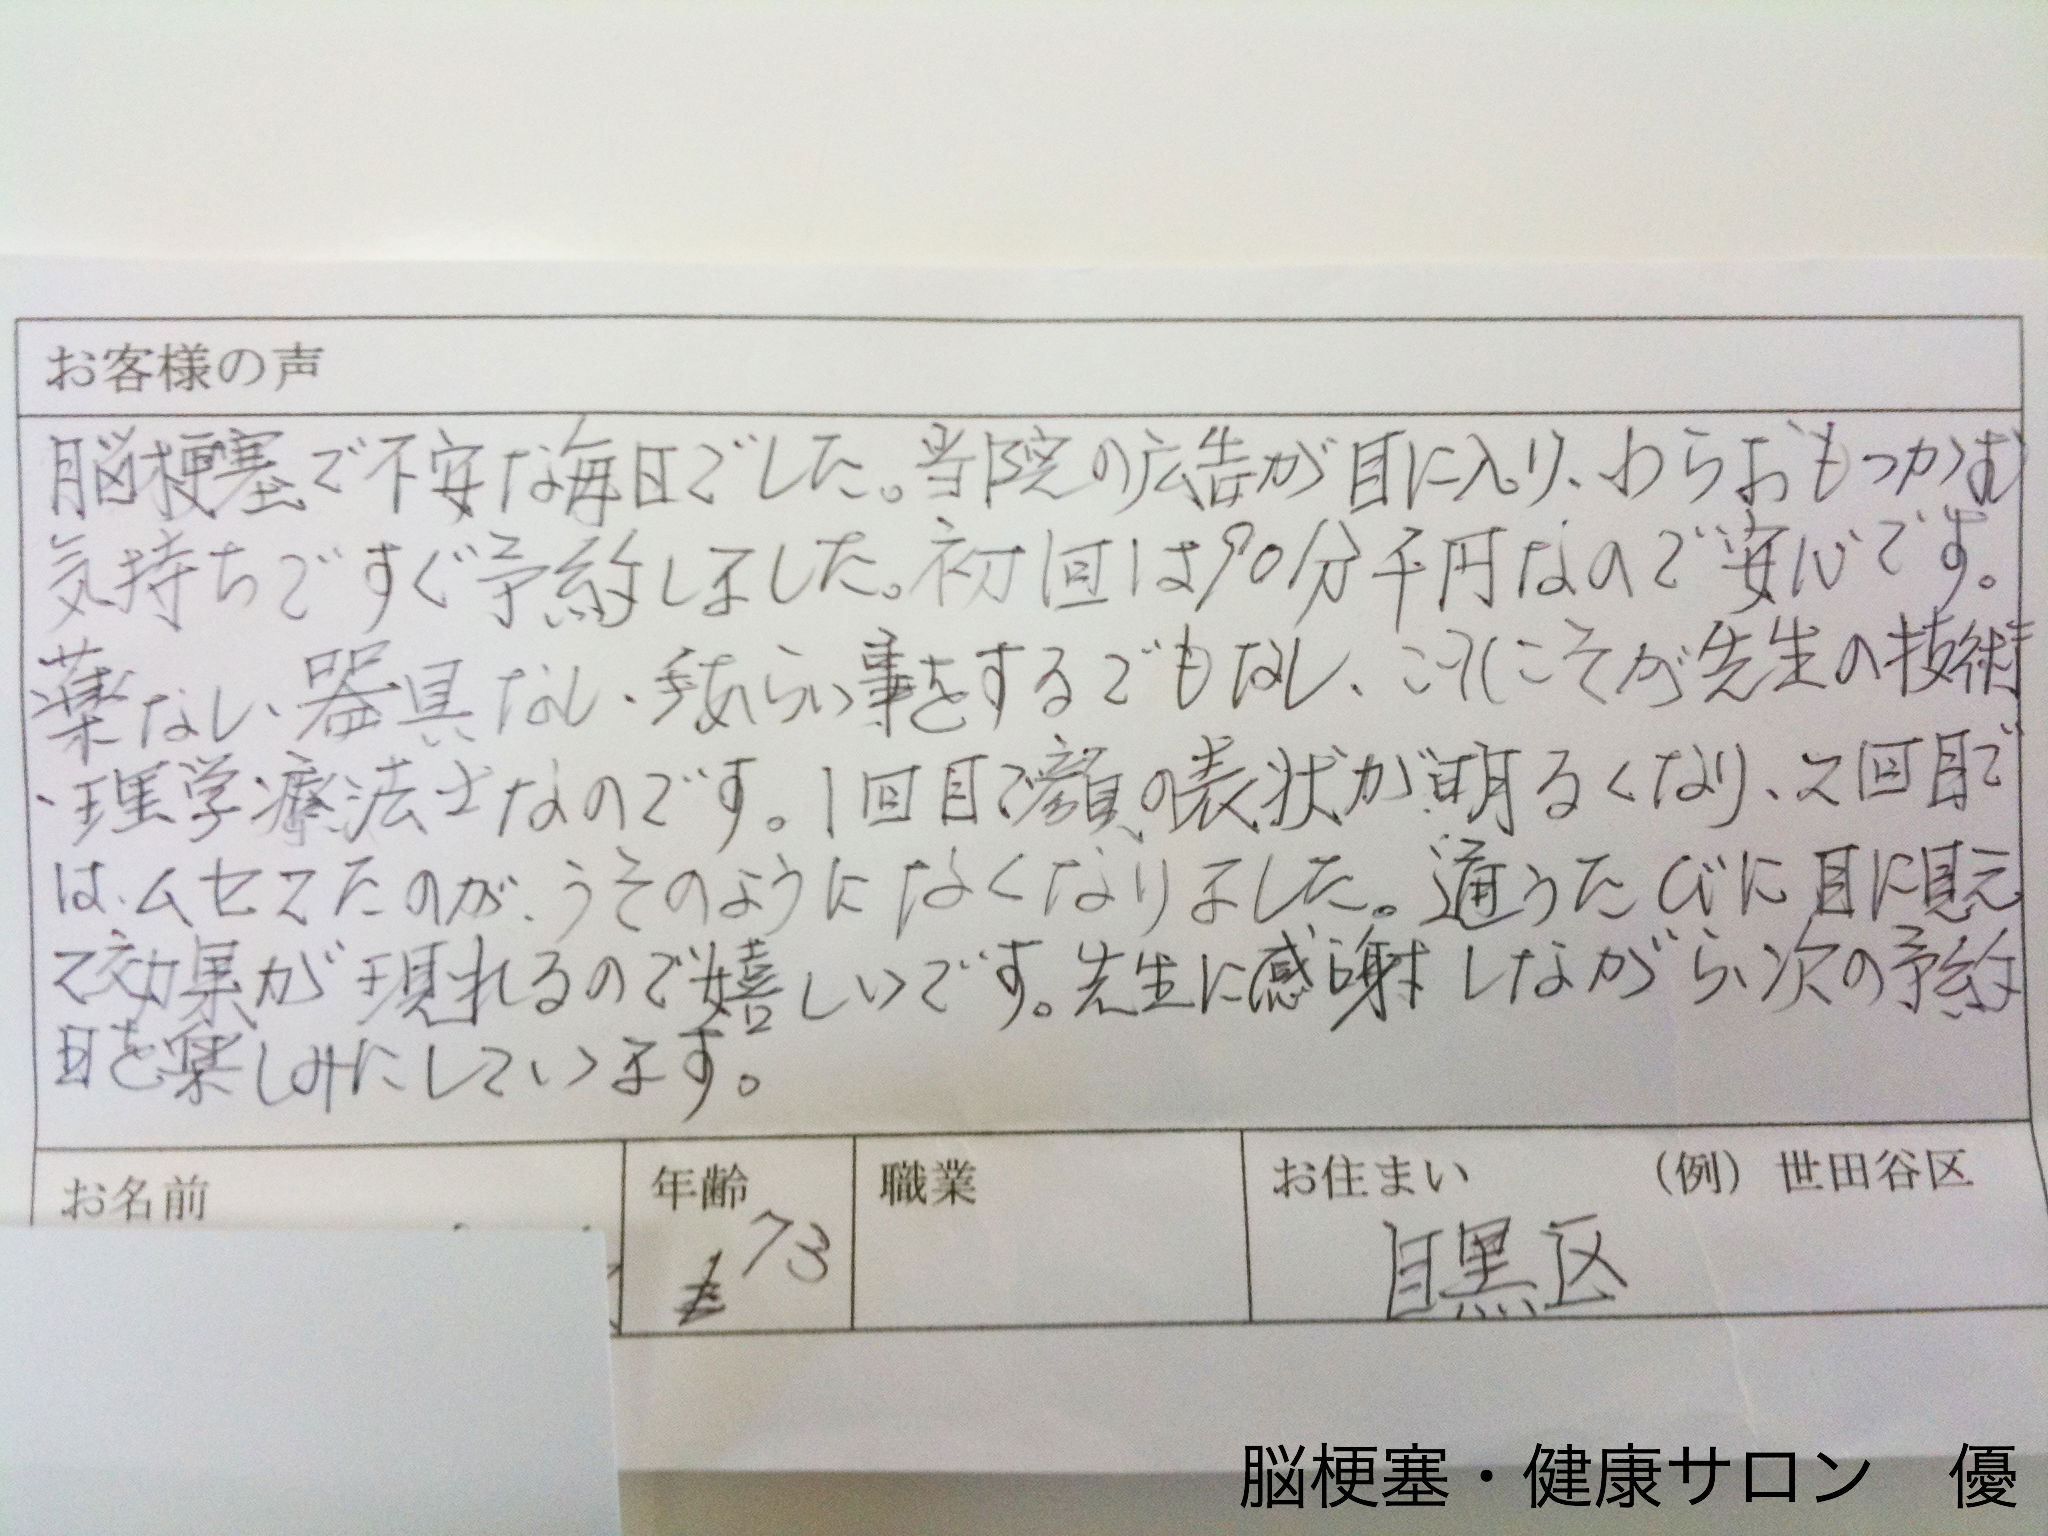 お客様の声
脳梗塞で不安な毎日でした。当院の広告が目に入り、わらおもつかむ
気持ちですぐ予約しました。初回は90分千円なので安心です。
薬なし、器具なし、手あらい事をするでもなし、これこそが先生の技術
・理学療法士なのです。1回目で顔の表状が明るくなり、2回目で
は、ムセてたのが、うそのようになくなりました。通うたびに目に見え
て効果が現れるので嬉しいです。先生に感謝しながら、次の予約
日を楽しみにしています。
お名前 年齢 職業 お住まい (例) 世田谷区
73 目黒区
脳梗塞・健康サロン 優